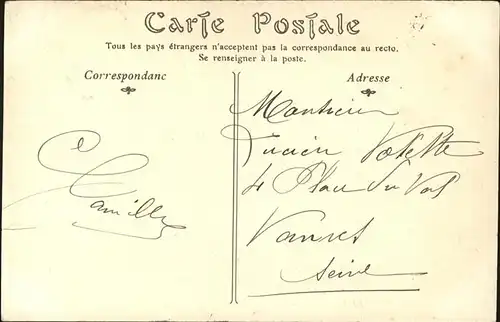 Carte Postale
Tous les pays étrangers n'acceptent pas la correspondance au recto.
Se renseigner à la poste.
Correspondanc
Adresse
Camille
Monsieur
Lucien
4 Place du Val
Vanves
Seine